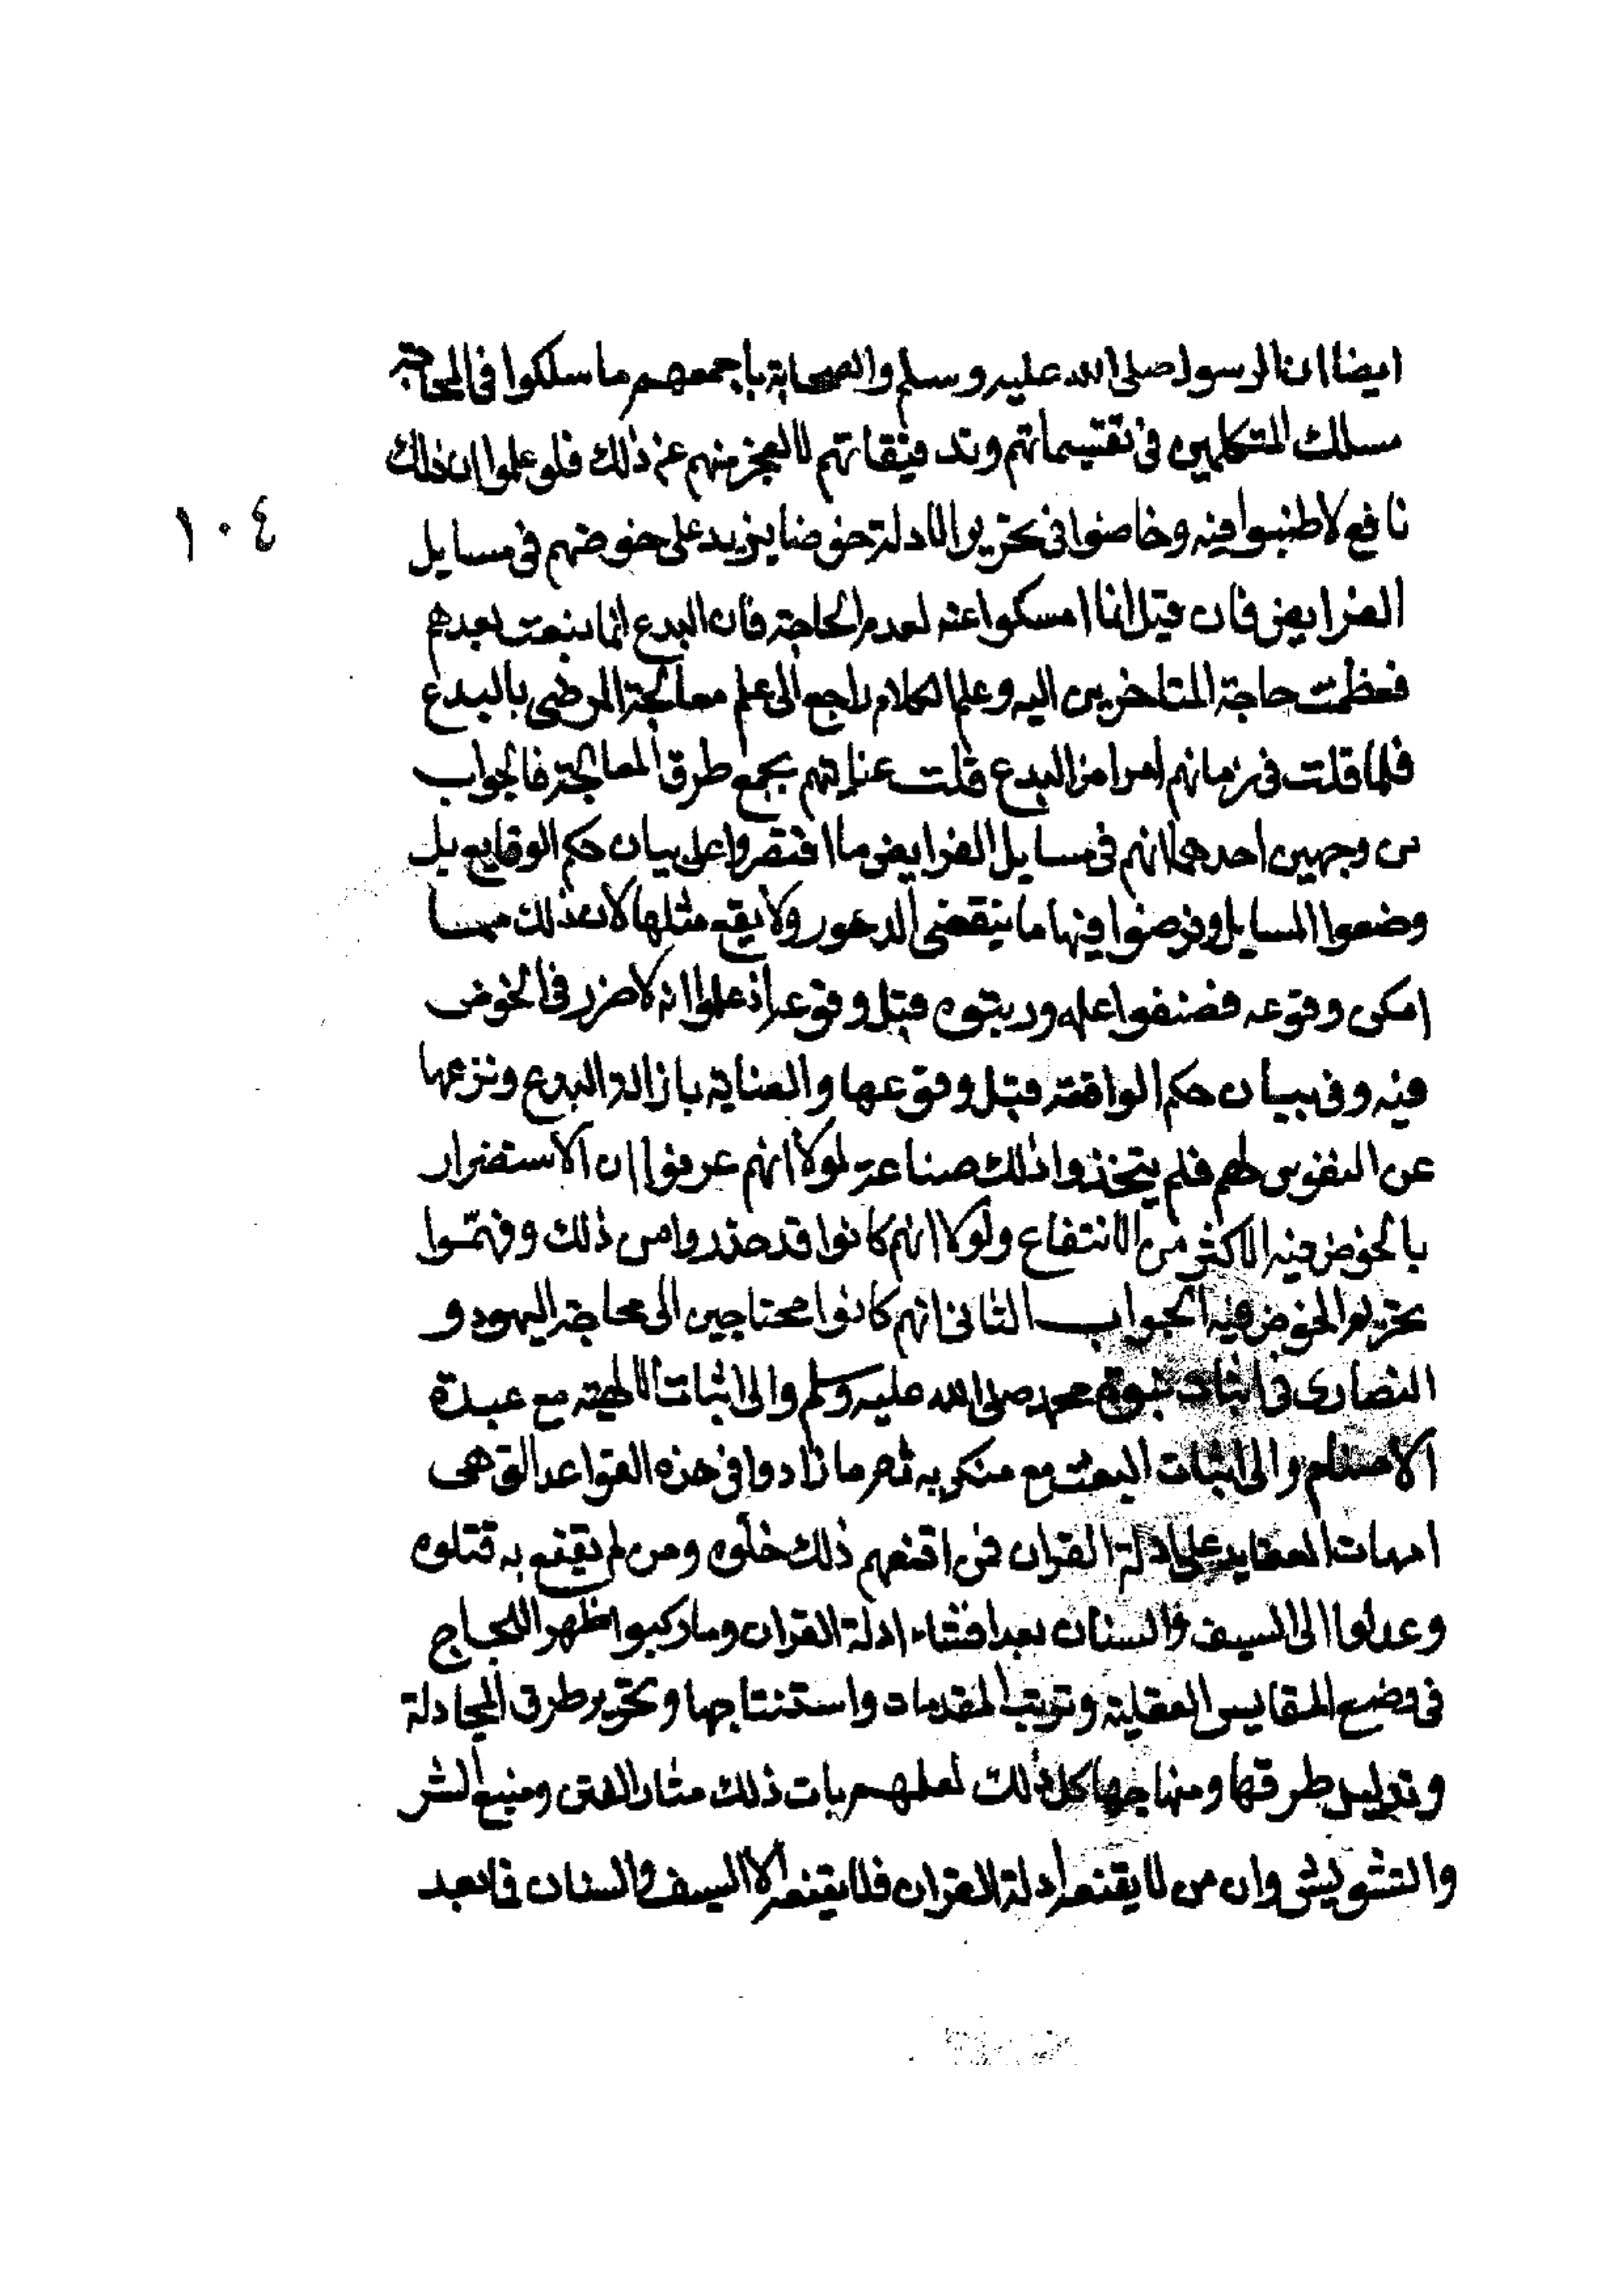 ايضا ان الرسول صلى الله عليه وسلم والصحابة باجمعهم ما سلكوا فى المحاجة
مسلك المتكلمين فى تقسيماتهم وتدقيقاتهم لا لعجز منهم عن ذلك فلو علموا ان ذلك
نافع لاطنبوا فيه وخاضوا فى تحرير الادلة خوضا يزيد على خوضهم فى مسايل
١٠٤
الفرايض فان قيل انما امسكوا عنه لعدم الحاجة فان البدع انما نبعت بعدهم
فعظمت حاجة المتاخرين اليه وعلم الكلام راجع الى علم معالجة المرضى بالبدع
فلما قلت فى زمانهم امراض البدع قلت عنايتهم بجمع طرق المعالجة فالجواب
من وجهين احدهما انهم فى مسايل الفرايض ما اقتصروا على بيان حكم الوقايع بل
وضعوا المسايل وفرضوا فيها ما ينقضى الدهور ولا يقع مثلها لان ذلك مما
امكن وقوعه فصنفوا علمه ورتبوه قبل وقوعه اذ علموا انه لا ضرر فى الخوض
فيه وفى بيان حكم الواقعة قبل وقوعها والعناية بازالة البدع ونزعها
عن النفوس لهم فلم يتخذوا ذلك صناعة لولا انهم عرفوا ان الاستضرار
بالخوض فيه الاكثر من الانتفاع ولولا انهم كانوا قد حذروا من ذلك وفهموا
تحريم الخوض فيه الجواب الثانى انهم كانوا محتاجين الى محاجة اليهود و
النصارى فى اثبات نبوة محمد صلى الله عليه وسلم والى اثبات الالهية مع عبدة
الاصنام والى اثبات البعث مع منكريه ثم ما زادوا فى هذه القواعد التى هى
امهات العقايد على ادلة القران فمن اقنعهم ذلك خلوه ومن لم يقنع به قتلوه
وعدلوا الى السيف والسنان بعد افشاء ادلة القران وما ركبوا ظهر اللجاج
فى وضع المقاييس العقلية وترتيب المقدمات واستنتاجها وتحرير طرق المجادلة
وتذليل طرقها ومنهاجها كل ذلك لعلمهم بان ذلك مثار الفتن ومنبع الشر
والتشويش وان من لا يقنعه ادلة القران فلا يقنعه الا السيف والسنان فما بعد